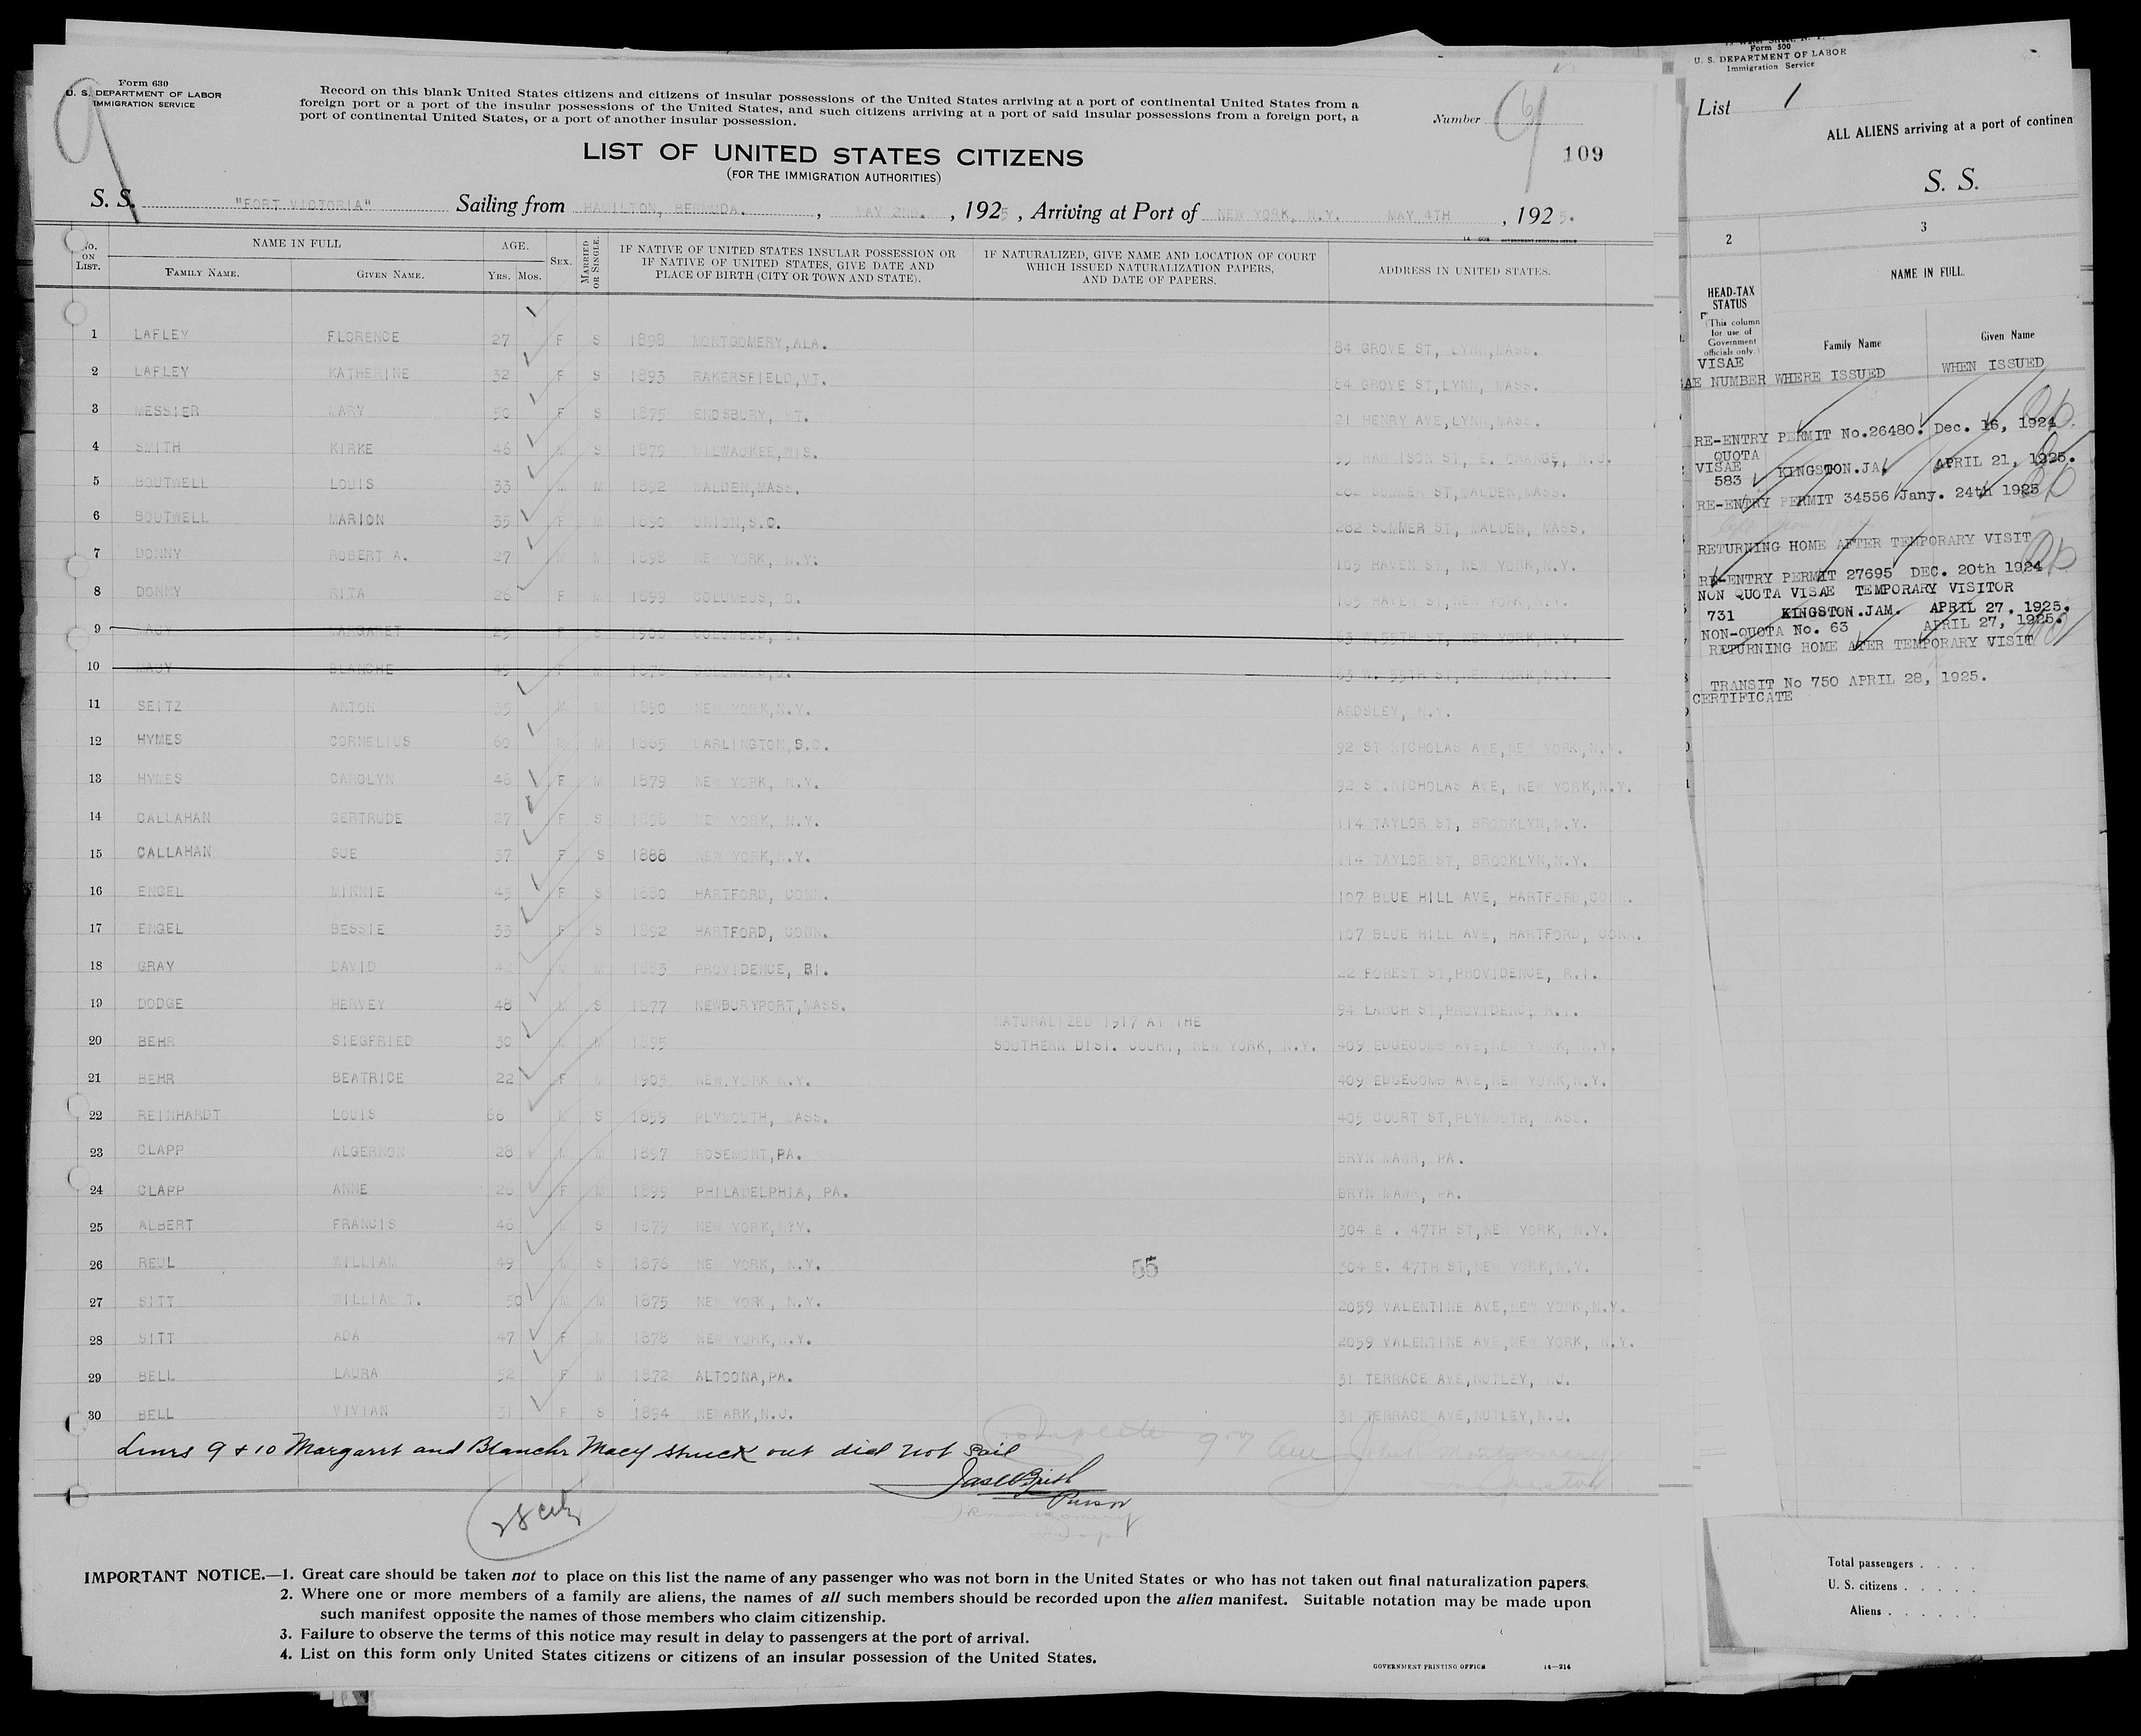 Form 630
U. S. DEPARTMENT OF LABOR
IMMIGRATION SERVICE
Record on this blank United States citizens and citizens of insular possessions of the United States arriving at a port of continental United States from a
foreign port or a port of the insular possessions of the United States, and such citizens arriving at a port of said insular possessions from a foreign port, a
port of continental United States, or a port of another insular possession.
Number
109
LIST OF UNITED STATES CITIZENS
(FOR THE IMMIGRATION AUTHORITIES)
S. S. "FORT VICTORIA" Sailing from HAMILTON, BERMUDA. , MAY 2ND. , 1925 , Arriving at Port of NEW YORK, N.Y. MAY 4TH , 1925.
No. ON LIST. NAME IN FULL AGE. SEX. MARRIED OR SINGLE. IF NATIVE OF UNITED STATES INSULAR POSSESSION OR IF NATIVE OF UNITED STATES, GIVE DATE AND PLACE OF BIRTH (CITY OR TOWN AND STATE). IF NATURALIZED, GIVE NAME AND LOCATION OF COURT WHICH ISSUED NATURALIZATION PAPERS, AND DATE OF PAPERS. ADDRESS IN UNITED STATES.
FAMILY NAME. GIVEN NAME. YRS. MOS.
1 LAFLEY FLORENCE 27 F S 1898 MONTGOMERY,ALA. 84 GROVE ST, LYNN,MASS.
2 LAFLEY KATHERINE 32 F S 1893 BAKERSFIELD,VT. 84 GROVE ST,LYNN, MASS.
3 MESSIER MARY 50 F S 1875 ENOSBURY, VT. 21 HENRY AVE,LYNN,MASS.
4 SMITH KIRKE 46 M S 1879 MILWAUKEE,WIS. HARRISON ST, E. ORANGE, N.J.
5 BOUTWELL LOUIS 33 M M 1892 MALDEN,MASS. 282 SUMMER ST,MALDEN,MASS.
6 BOUTWELL MARION 35 F M 1890 UNION,S.C. 282 SUMMER ST, MALDEN, MASS.
7 DONNY ROBERT A. 27 M M 1898 NEW YORK, N.Y. HAVEN ST, NEW YORK,N.Y.
8 DONNY RITA 26 F M 1899 COLUMBUS, O. HAVEN ST,NEW YORK,N.Y.
9 MACY MARGARET 25 F S 1900 COLUMBUS, O. 63 W.55TH ST, NEW YORK,N.Y.
10 MACY BLANCHE F M COLUMBUS,O. 63 W. 55TH ST,NEW YORK,N.Y.
11 SEITZ ANTON 35 M M 1890 NEW YORK,N.Y. ARDSLEY, N.Y.
12 HYMES CORNELIUS 60 M M 1865 DARLINGTON,S.C. 92 ST NICHOLAS AVE,NEW YORK,N.Y.
13 HYMES CAROLYN 46 F M 1879 NEW YORK, N.Y. 92 ST.NICHOLAS AVE, NEW YORK,N.Y.
14 CALLAHAN GERTRUDE 27 F S 1898 NEW YORK, N.Y. 114 TAYLOR ST, BROOKLYN,N.Y.
15 CALLAHAN SUE 37 F S 1888 NEW YORK,N.Y. 114 TAYLOR ST, BROOKLYN,N.Y.
16 ENGEL MINNIE 45 F S 1880 HARTFORD, CONN. 107 BLUE HILL AVE, HARTFORD,CONN.
17 ENGEL BESSIE 33 F S 1892 HARTFORD, CONN. 107 BLUE HILL AVE, HARTFORD, CONN.
18 GRAY DAVID 42 M M 1883 PROVIDENCE, RI. 22 FOREST ST,PROVIDENCE, R.I.
19 DODGE HERVEY 48 M S 1877 NEWBURYPORT,MASS. 94 LARCH ST,PROVIDENC, R.I.
NATURALIZED 1917 AT THE
20 BEHR SIEGFRIED 30 M M 1895 SOUTHERN DIST. COURT, NEW YORK, N.Y. 409 EDGECOMB AVE,NEW YORK, N.Y.
21 BEHR BEATRICE 22 F M 1903 NEW.YORK N.Y. 409 EDGECOMB AVE,NEW YORK,N.Y.
22 REINHARDT LOUIS 66 M S 1859 PLYMOUTH, MASS. 405 COURT ST,PLYMOUTH, MASS.
23 CLAPP ALGERNON 28 M M 1897 ROSEMONT,PA. BRYN MAWR, PA.
24 CLAPP ANNE 26 F M 1899 PHILADELPHIA, PA. BRYN MAWR, PA.
25 ALBERT FRANCIS 46 M S 1879 NEW YORK,NYY. 304 E . 47TH ST,NEW YORK, N.Y.
26 REUL WILLIAM 49 M S 1876 NEW YORK, N.Y. 55 304 E. 47TH ST,NEW YORK,N.Y.
27 SITT WILLIAM T. 50 M M 1875 NEW YORK, N.Y. 2059 VALENTINE AVE,NEW YORK,N.Y.
28 SITT ADA 47 F M 1878 NEW YORK,N.Y. 2059 VALENTINE AVE,NEW YORK, N.Y.
29 BELL LAURA 52 F M 1872 ALTOONA,PA. 31 TERRACE AVE,NUTLEY, NJ.
30 BELL VIVIAN 31 F S 1894 NEWARK,N.J. 31 TERRACE AVE,NUTLEY,N.J.
Lines 9 & 10 Margaret and Blanche Macy struck out did not sail
Purser
John R Montgomery
Inspector
28 citz
IMPORTANT NOTICE.—1. Great care should be taken not to place on this list the name of any passenger who was not born in the United States or who has not taken out final naturalization papers.
2. Where one or more members of a family are aliens, the names of all such members should be recorded upon the alien manifest. Suitable notation may be made upon
such manifest opposite the names of those members who claim citizenship.
3. Failure to observe the terms of this notice may result in delay to passengers at the port of arrival.
4. List on this form only United States citizens or citizens of an insular possession of the United States.
GOVERNMENT PRINTING OFFICE 14—214
Form 500
U. S. DEPARTMENT OF LABOR
Immigration Service
List 1
ALL ALIENS arriving at a port of continen
S. S.
2 3
NAME IN FULL.
HEAD-TAX
STATUS
(This column
for use of
Government
officials only.)
Family Name Given Name
VISAE
NUMBER WHERE ISSUED WHEN ISSUED
RE-ENTRY PERMIT No.26480. Dec. 16, 1924.
QUOTA
VISAE KINGSTON.JA. APRIL 21, 1925.
583
RE-ENTRY PERMIT 34556 Jany. 24th 1925
RETURNING HOME AFTER TEMPORARY VISIT
RE-ENTRY PERMIT 27695 DEC. 20th 1924
NON QUOTA VISAE TEMPORARY VISITOR
731 KINGSTON.JAM. APRIL 27, 1925.
NON-QUOTA No. 63 APRIL 27, 1925.
RETURNING HOME ATER TEMPORARY VISIT
TRANSIT No 750 APRIL 28, 1925.
CERTIFICATE
Total passengers . . . .
U. S. citizens . . . . .
Aliens . . . . . .